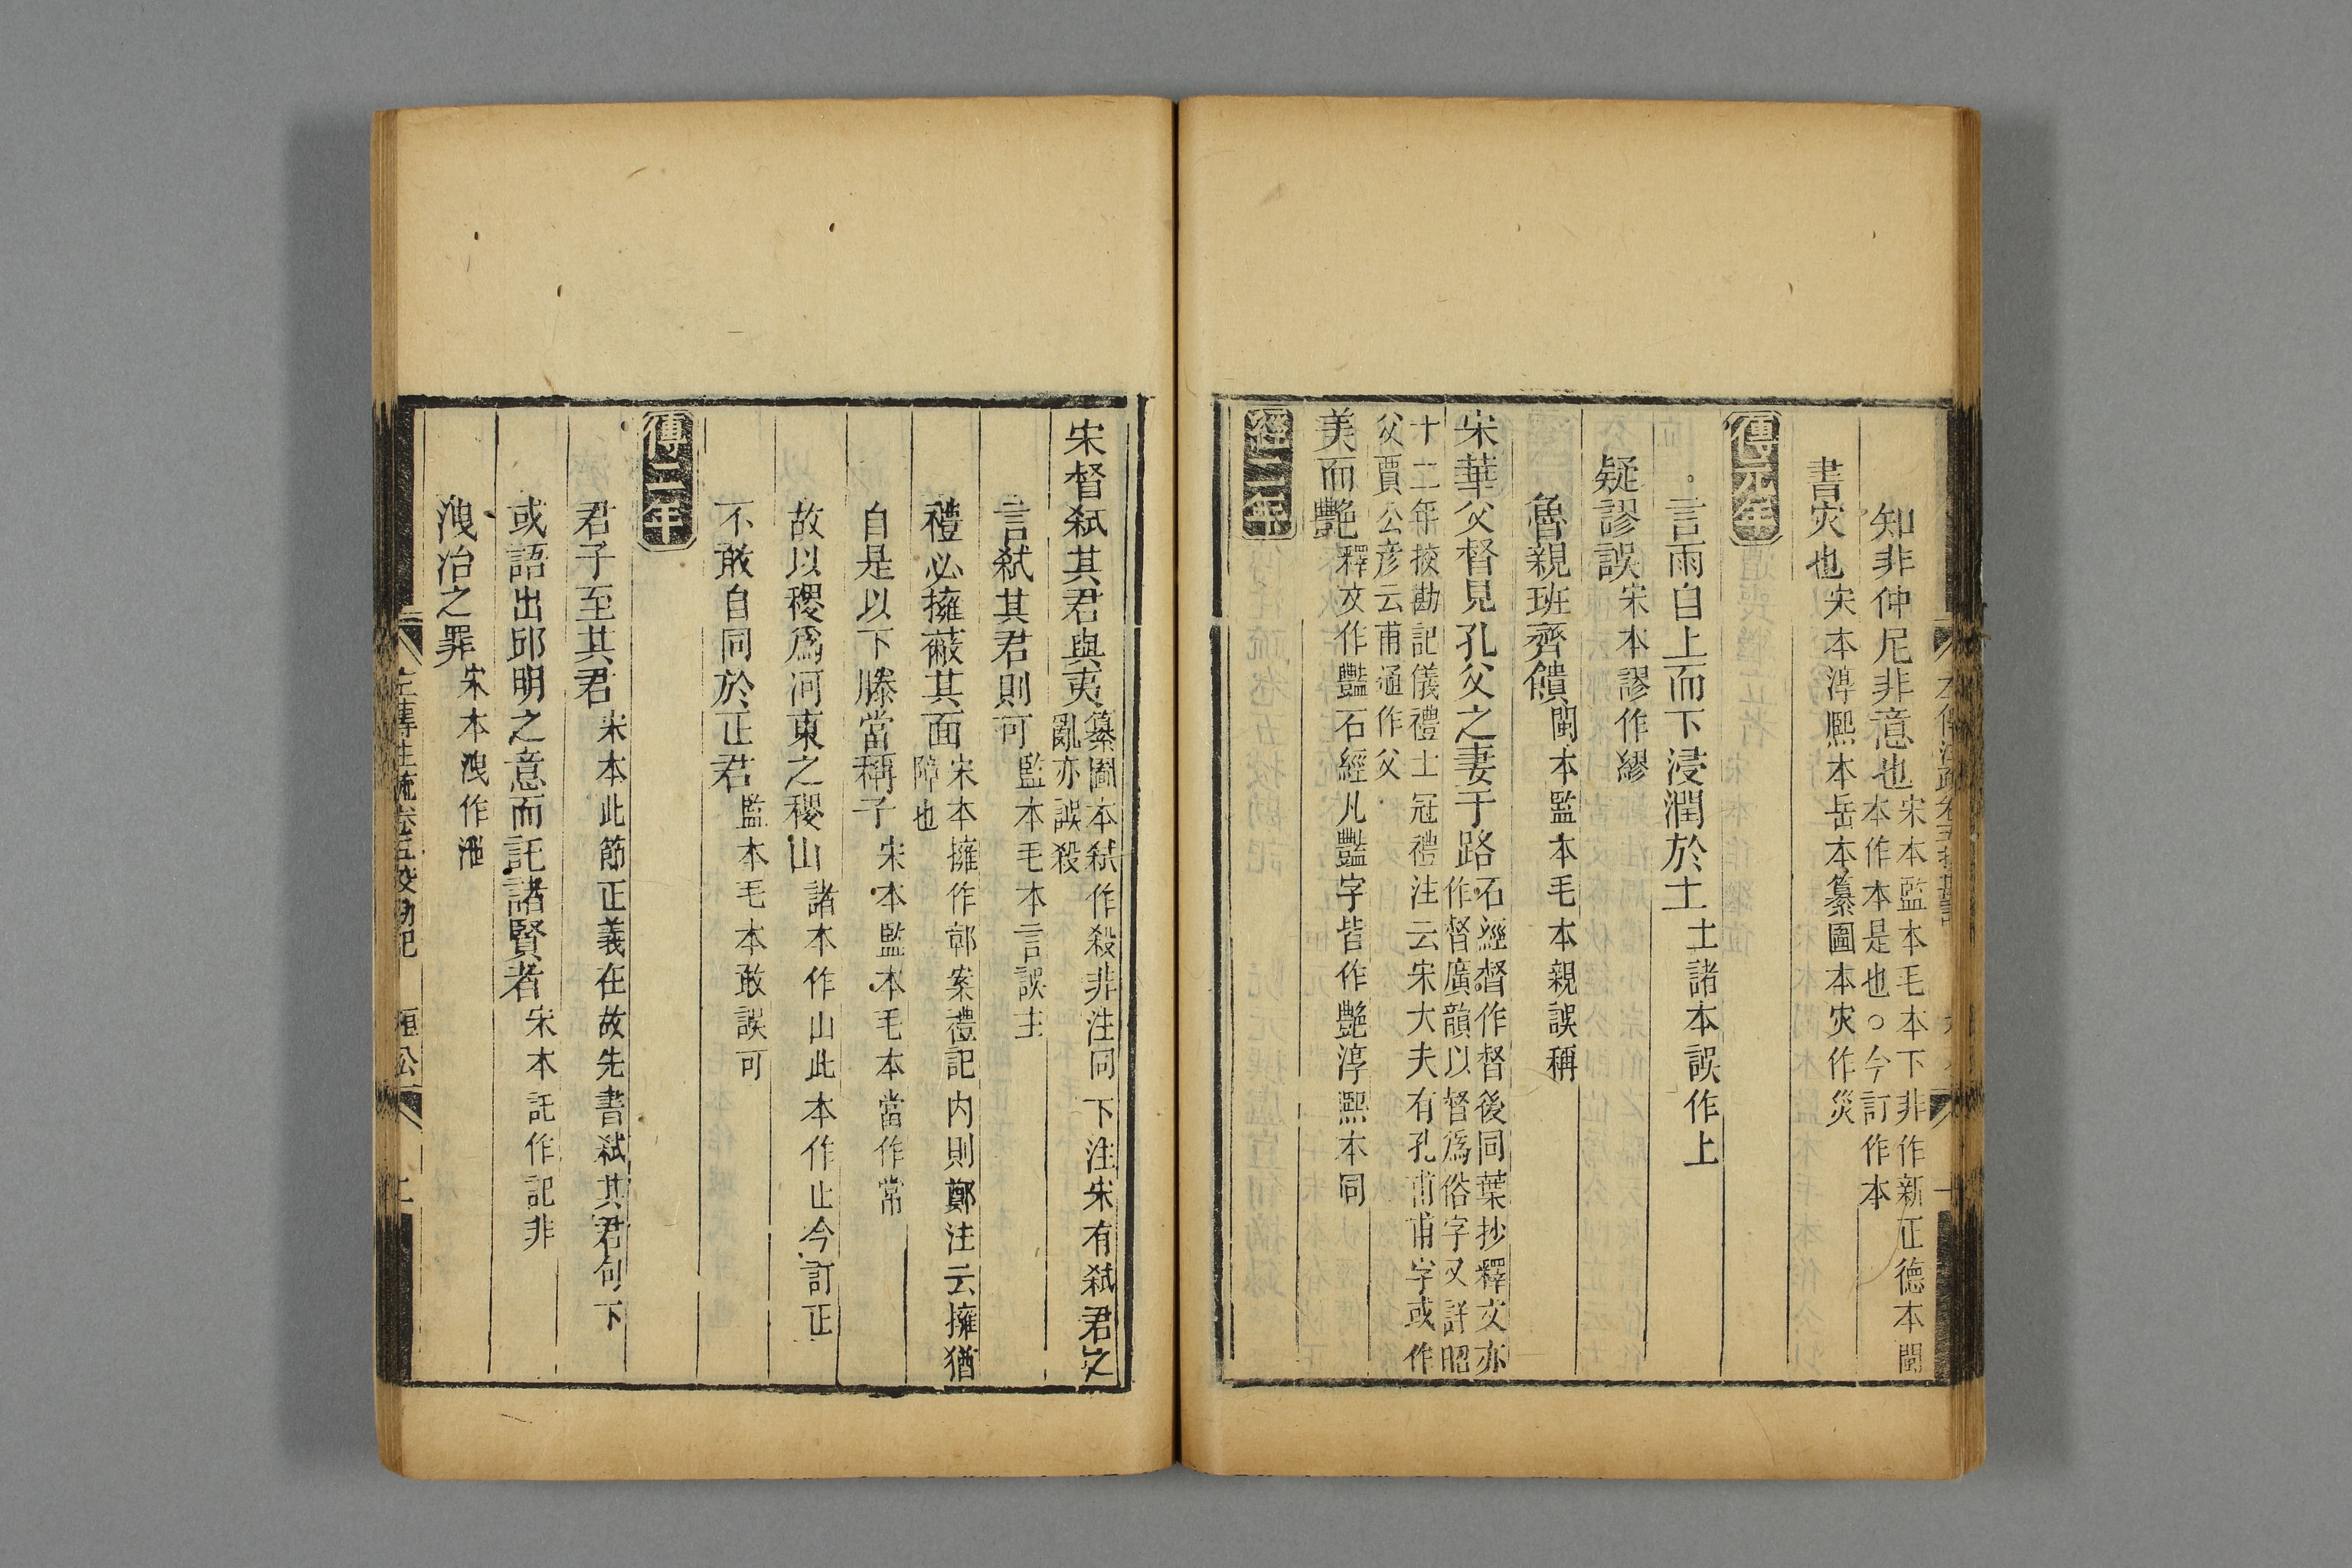 知非仲尼非意也宋本監本毛本下非作新正德本閩
本作本是也○今訂作本
書灾也宋本淳熙本岳本纂圖本灾作災
傳元年
言雨自上而下浸潤於土土諸本誤作上
疑謬誤宋本謬作繆
魯親班齊饋閩本監本毛本親誤稱
宋華父督見孔父之妻于路石經督作督後同葉抄釋文亦
作督廣韻以督爲俗字又詳昭
十二年挍勘記儀禮士冠禮注云宋大夫有孔甫甫字或作
父賈公彦云甫通作父
美而艷釋文作豔石經凡豔字皆作艷淳熙本同
經二年
宋督弑其君與夷纂圖本弑作殺非注同下注宋有弑君之
亂亦誤殺
言弑其君則可監本毛本言誤主
禮必擁蔽其面宋本擁作鄣案禮記内則鄭注云擁猶
障也
自是以下滕當稱子宋本監本毛本當作常
故以稷爲河東之稷山諸本作山此本作止今訂正
不敢自同於正君監本毛本敢誤可
傳二年
君子至其君宋本此節正義在故先書弑其君句下
或語出邱明之意而託諸賢者宋本託作記非
洩冶之罪宋本洩作泄
左傳注疏卷五挍勘記 桓公